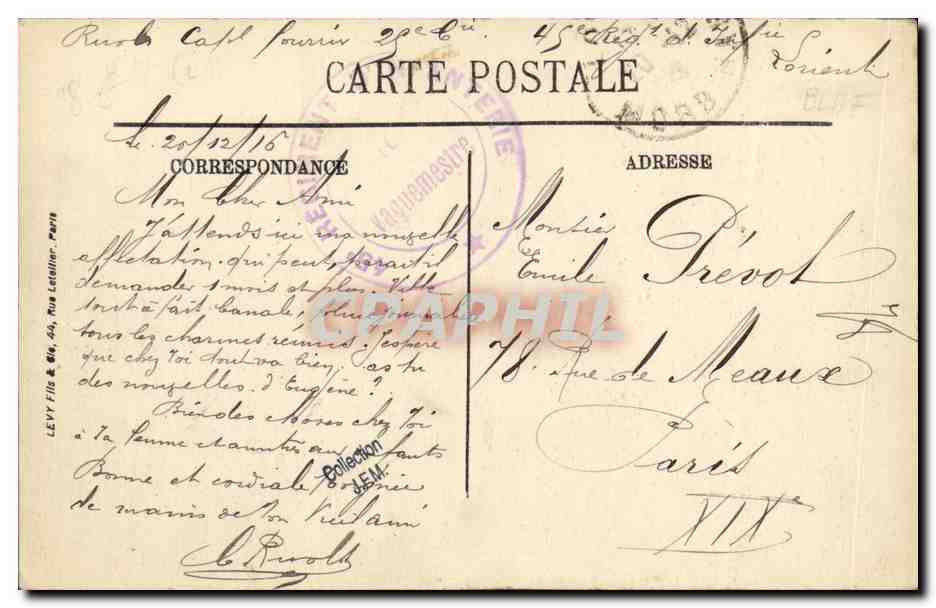 Capl fourrier 29e Cie. 45e Reg.t d'Inf.ie
Lorient
CARTE POSTALE
REGIMENT INFANTERIE
Vaguemestre
Le 20/12/16
CORRESPONDANCE
ADRESSE
Mon Cher Ami
J'attends ici ma nouvelle
affectation qui peut, parait il
demander 1 mois et plus. Ville
tout à fait banale,
tous les charmes réunis. J'espère
que chez Toi tout va bien. as tu
des nouvelles d'Eugène?
Bien des choses chez Toi
à Ta femme et amitiés aux enfants
Bonne et cordiale poignée
de mains de ton Vieil ami
Monsieur
Emile Prévot
78. Rue de Meaux
Paris
XIXe
LEVY Fils & Cie, 44, Rue Letellier, Paris
CPAPHIL
Collection
J.E.M.